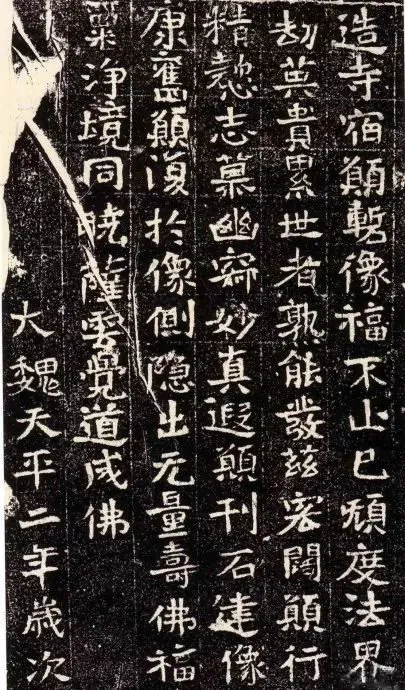 造寺宿願暫像福不止已頹度法界
劫英貴累世者孰能發茲宏闊願行
精愨志慕幽寂妙真遐願刊石建像
康舊願復於像側隱出无量壽佛福
淨境同曉薩雲覺道成佛
大魏天平二年歲次